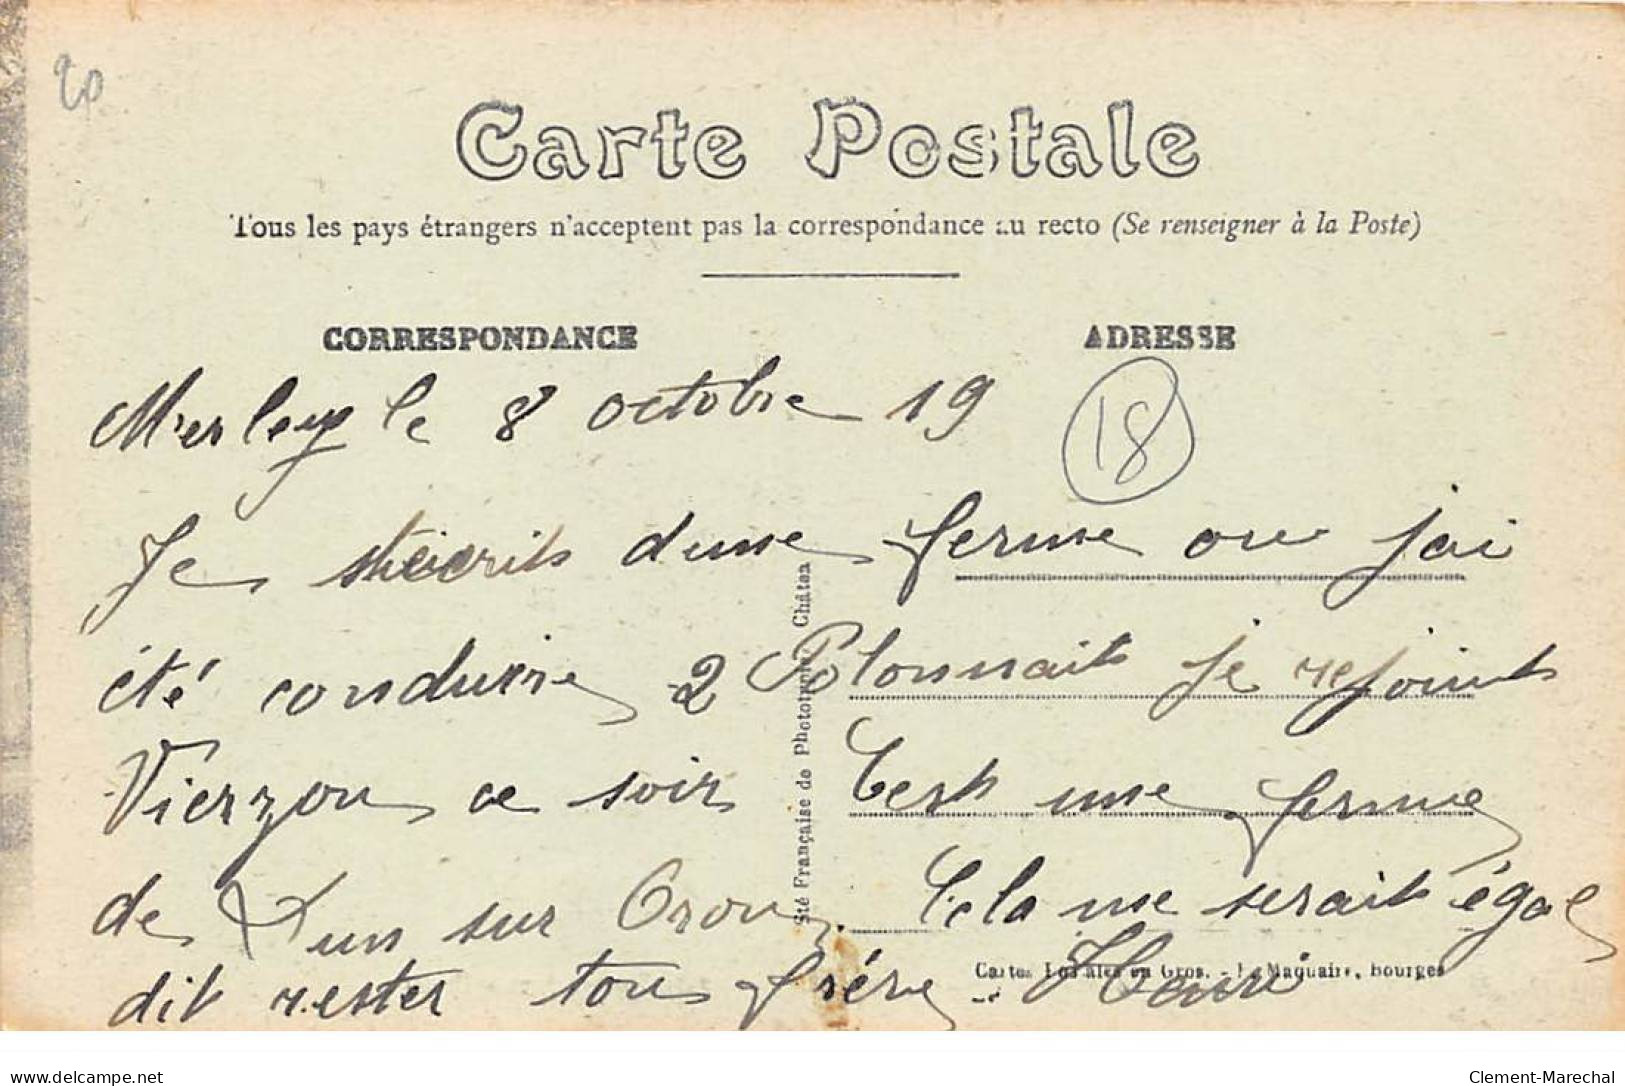 20
Carte Postale
Tous les pays étrangers n'acceptent pas la correspondance au recto (Se renseigner à la Poste)
CORRESPONDANCE
ADRESSE
18
le 8 octobre 19
Je d'une ferme ou j'ai
été conduire 2 Polonnait je rejoint
Vierzon ce soir C'est une ferme
de Dun sur Oron. Cela me serait égal
dit rester ton frère Henri
Sté Française de Phototypie, Châtea
Cartes Postales en Gros. - Maquaire, Bourges
delcampe.net
Clement-Marechal